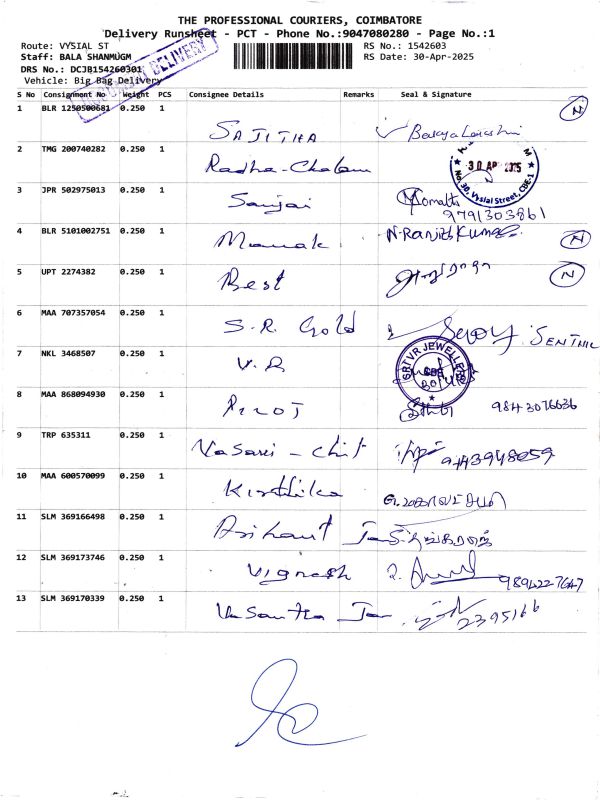 THE PROFESSIONAL COURIERS, COIMBATORE
Delivery Runsheet - PCT - Phone No.:9047080280 - Page No.:1
Route: VYSIAL ST RS No.: 1542603
Staff: BALA SHANMUGM RS Date: 30-Apr-2025
DRS No.: DCJB154260301
Vehicle: Big Bag Delivery
DELIVERY
S No Consignment No Weight PCS Consignee Details Remarks Seal & Signature
1 BLR 1250500681 0.250 1 SAJITHA N
2 TMG 200740282 0.250 1 Radha-Chalam
30 APR 2025
No. 30, Vysial Street, CBE-1
3 JPR 502975013 0.250 1 Sanjai
9791303861
4 BLR 5101002751 0.250 1 N-Ranjith Kumar N
5 UPT 2274382 0.250 1 Best N
6 MAA 707357054 0.250 1 S.R. Gold SENTHIL
7 NKL 3468507 0.250 1 V.R
SRTVR JEWELLERS
CBE
8 MAA 868094930 0.250 1 9843076636
9 TRP 635311 0.250 1 Vasavi - Chit 9443948059
10 MAA 600570099 0.250 1 Kirthika
11 SLM 369166498 0.250 1 Arihant Jam
12 SLM 369173746 0.250 1 Vignesh 9894227647
13 SLM 369170339 0.250 1 Vasantha 2395166